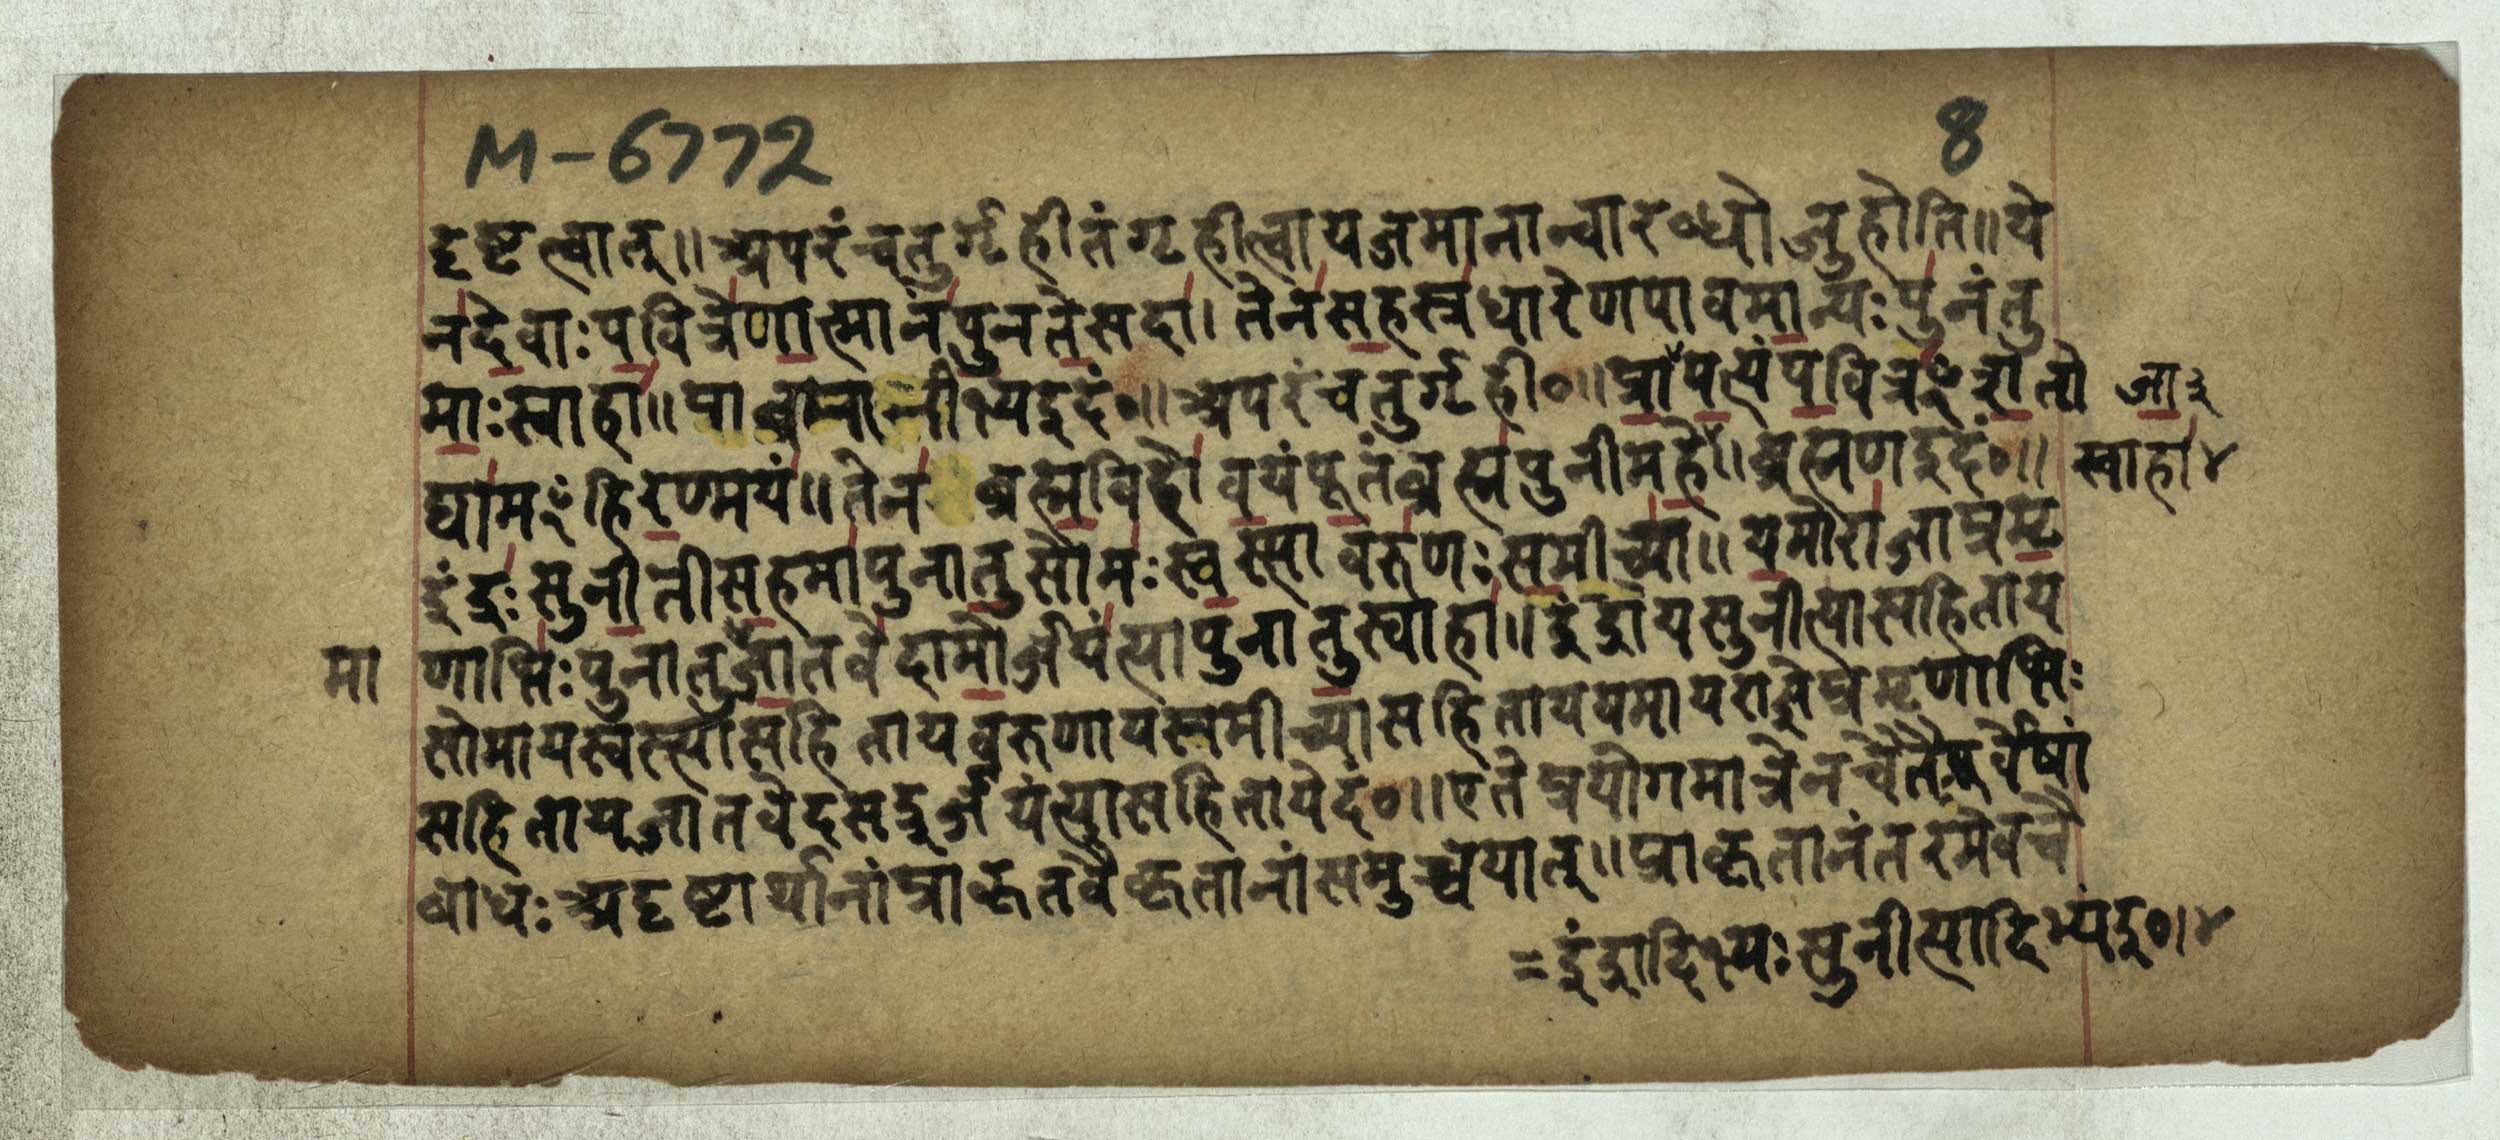 M-6772
8
दृष्टत्वात्॥ अपरंचतुर्गृहीतंगृहीत्वायजमानान्वारब्धोजुहोति॥ये
नदेवाःपवित्रेणात्मानंपुनतेसदा। तेनसहस्रधारेणपावमान्यःपुनंतु
माःस्वाहा॥पावमानीभ्यइदं०॥अपरंचतुर्गृही०॥प्रापत्यंपवित्रꣳशतो जा ३
द्यामꣳहिरण्मयं॥तेन ब्रह्मविदो वयंपूतंब्रह्मपुनीमहे॥ब्रह्मणइदं०॥ स्वाहा४
इंद्रःसुनीतीसहमापुनातुसोमःस्वस्त्यावरुणःसमीच्या॥यमोराजाप्रमृ
मा णाभिःपुनातुजातवेदामोर्जयंत्यापुनातुस्वाहा॥इंद्रायसुनीत्यासहिताय
सोमायस्वस्त्यासहितायवरुणायसमीच्यासहिताययमायराज्ञेप्रमृणाभिः
सहितायजातवेदसऊर्जयंत्यासहितायेदं०॥एतेप्रयोगमात्रेन
बाधःअदृष्टार्थानांप्राकृतवैकृतानांसमुच्चयात्॥प्राकृतानंतरमेवचै
=इंद्रादिभ्यःसुनीत्यादिभ्यइ०।४